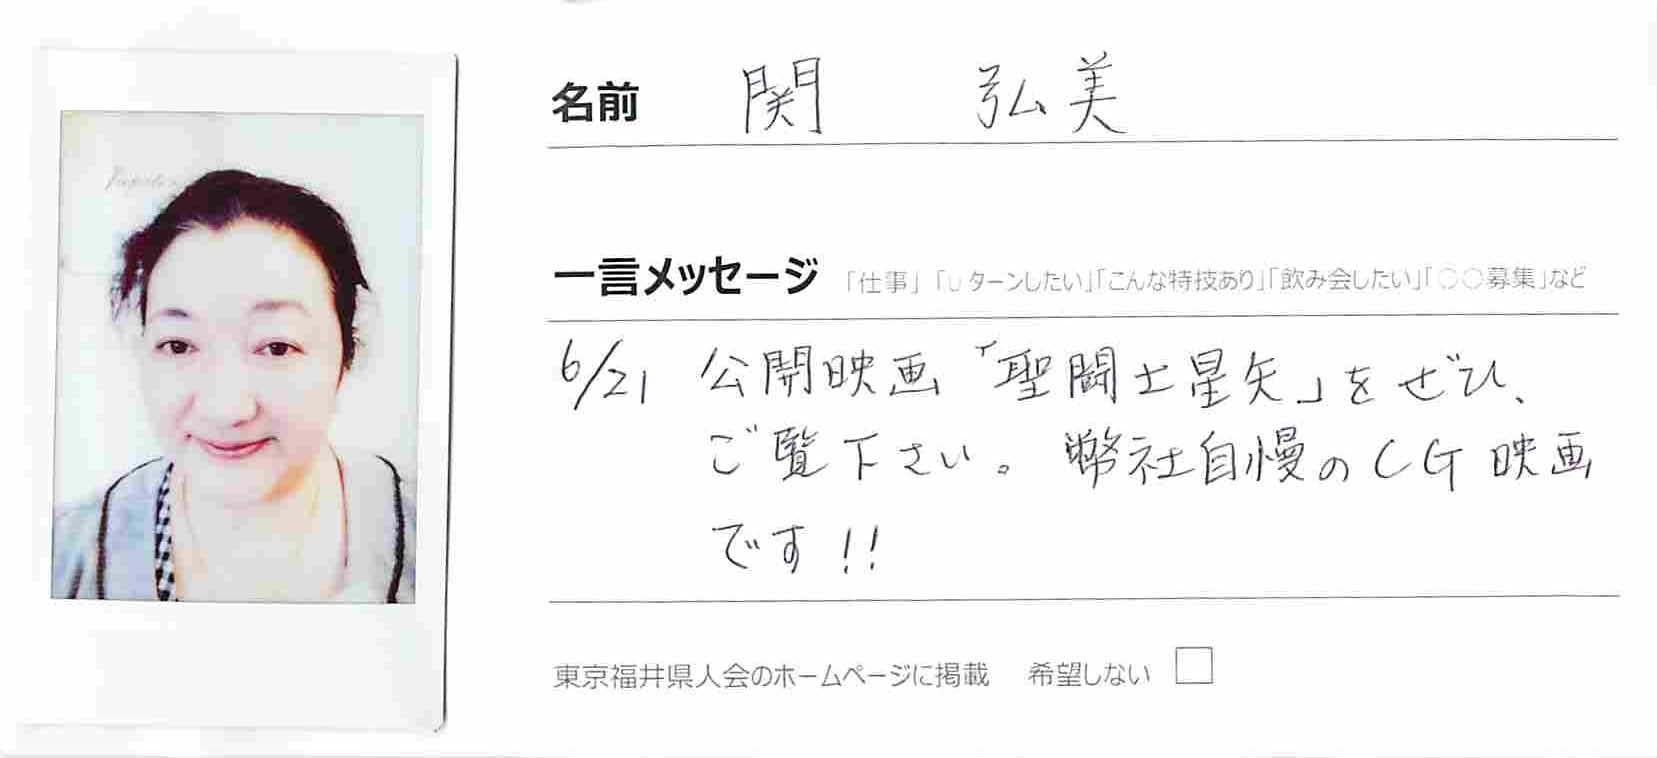 名前 関 弘美
一言メッセージ 「仕事」「Uターンしたい」「こんな特技あり」「飲み会したい」「○○募集」など
6/21 公開映画「聖闘士星矢」をぜひ、
ご覧下さい。弊社自慢のCG映画
です!!
東京福井県人会のホームページに掲載 希望しない □